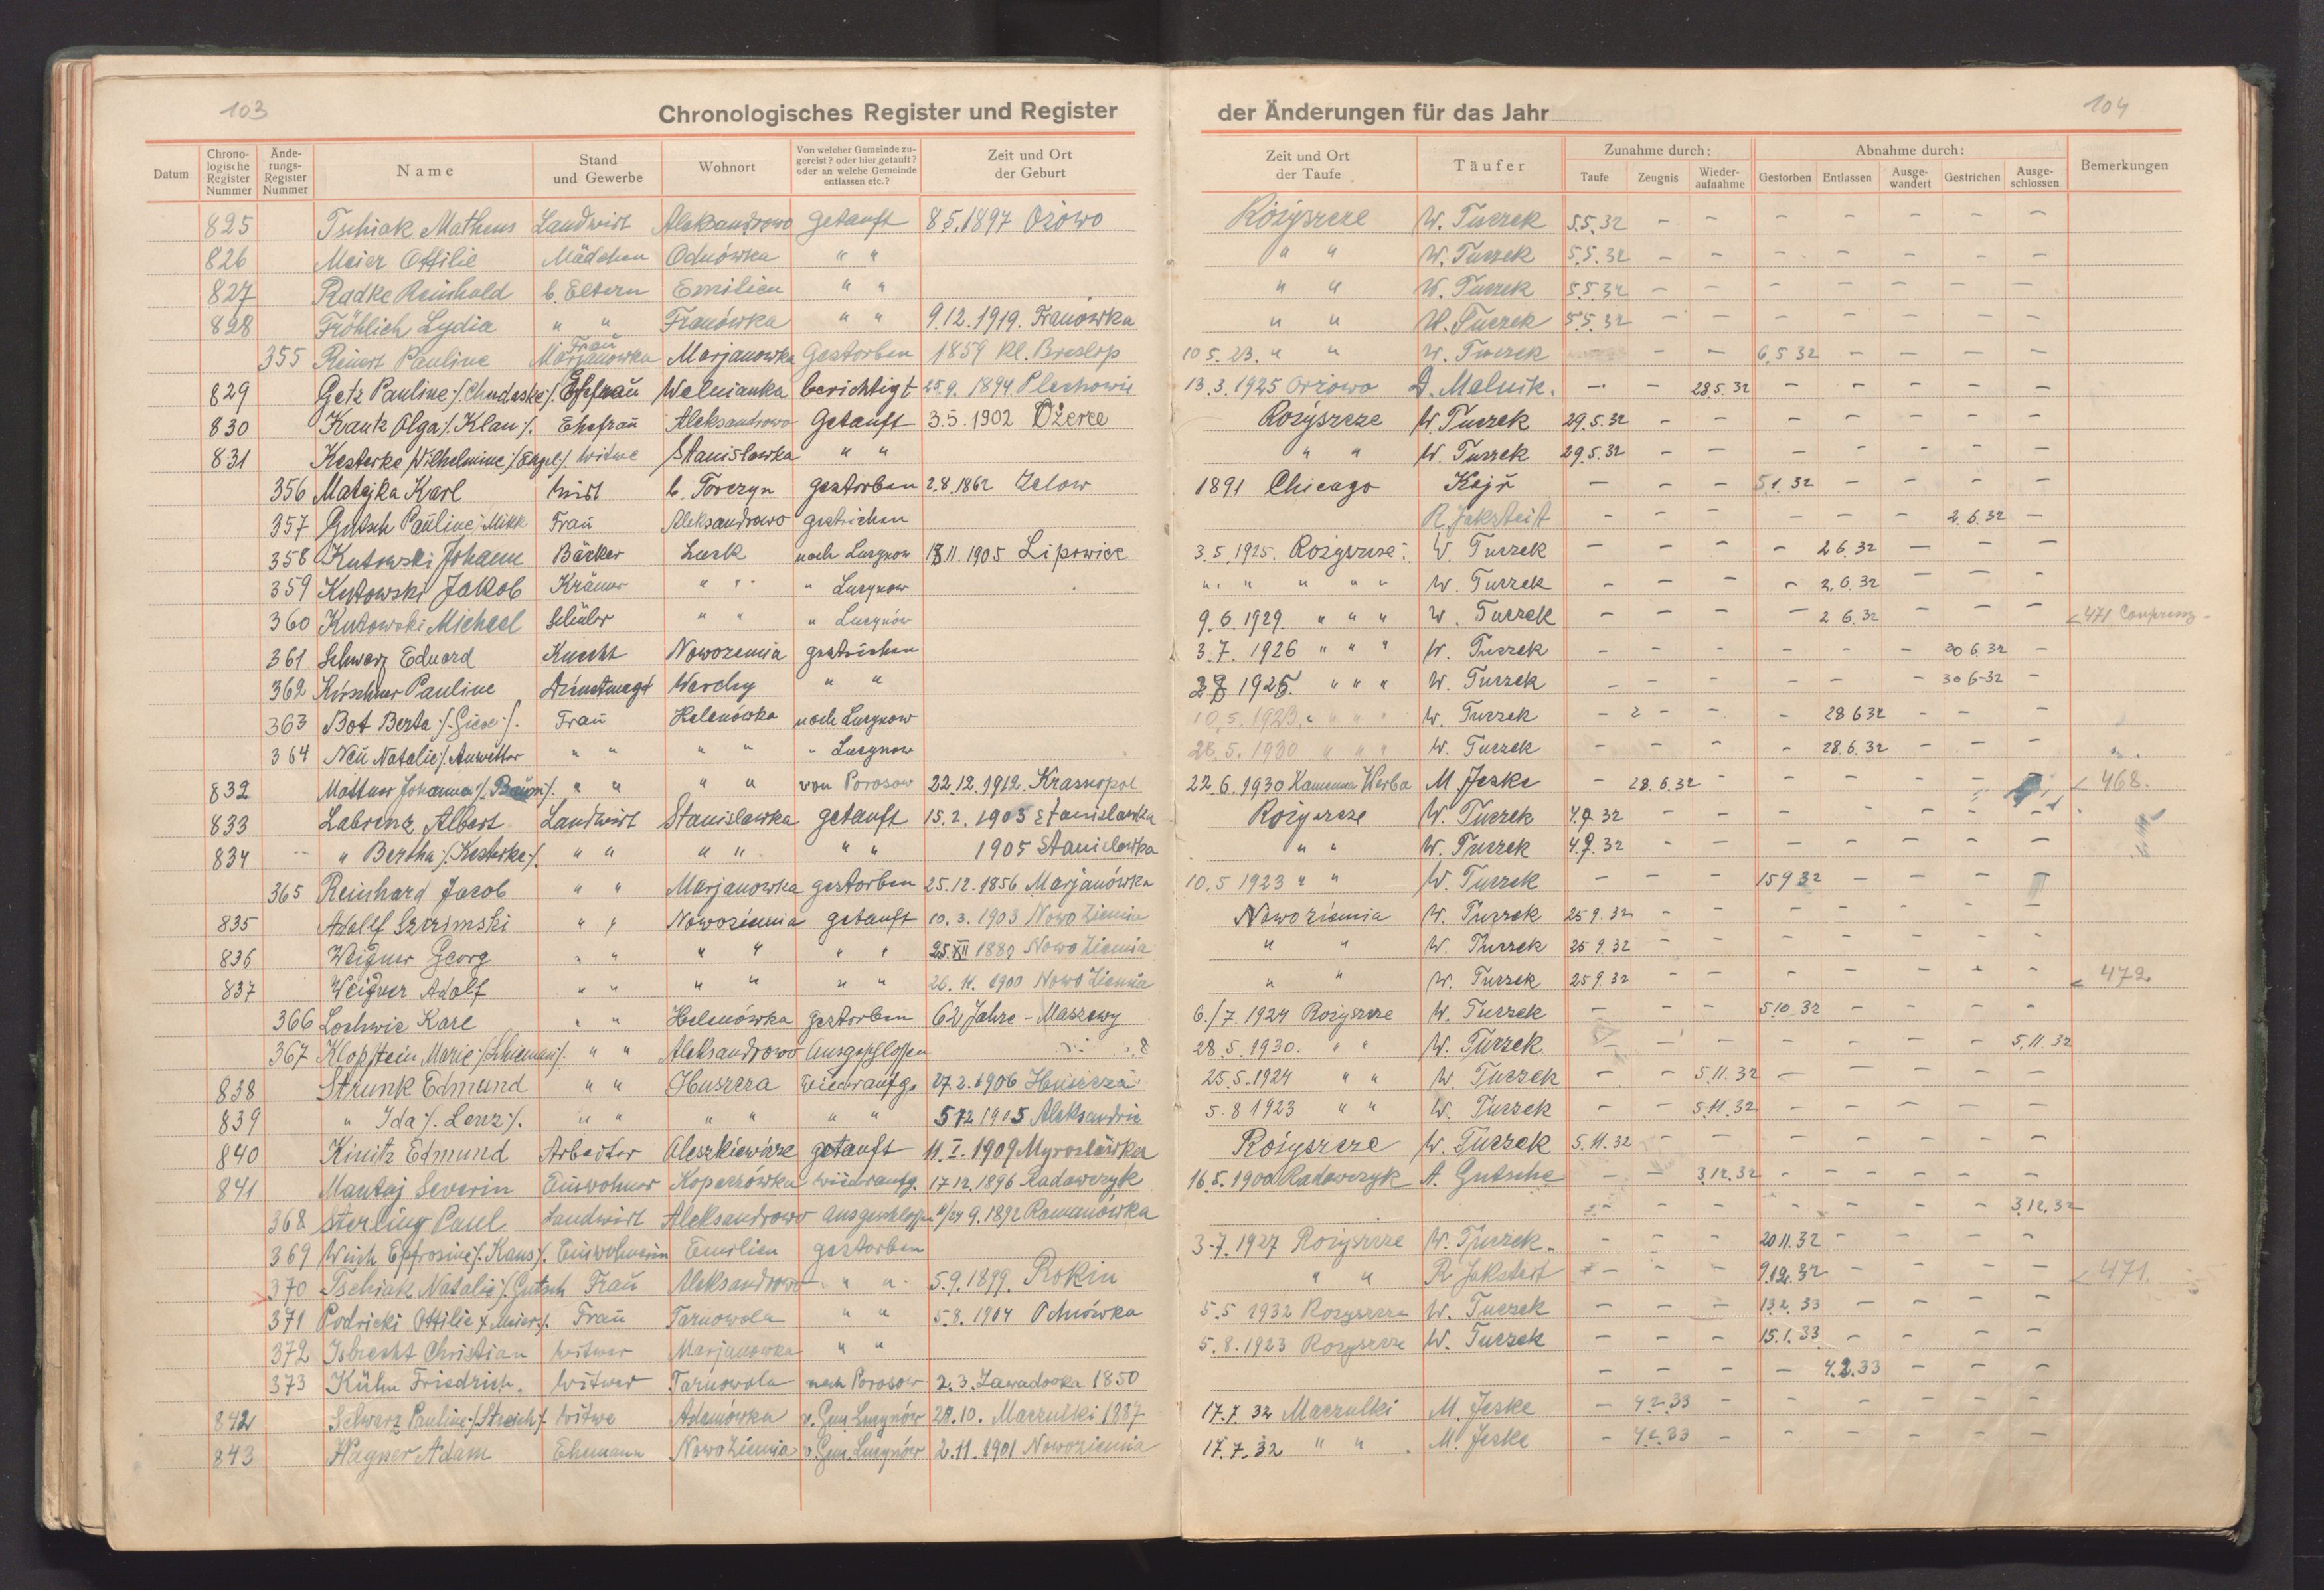 103
Chronologisches Register und Register der Änderungen für das Jahr
104
Datum Chrono-logische Register Nummer Ände-rungs-Register Nummer Name Stand und Gewerbe Wohnort Von welcher Gemeinde zu-gereist? oder hier getauft? oder an welche Gemeinde entlassen etc.? Zeit und Ort der Geburt Zeit und Ort der Taufe Täufer Zunahme durch: Taufe Zeugnis Wieder-aufnahme Abnahme durch: Gestorben Entlassen Ausge-wandert Gestrichen Ausge-schlossen Bemerkungen
825 Tschiak Matheus Landwirt Aleksandrowo getauft 8.5.1897 Ozowo Rózyszcze W. Tuczek 5.5.32 - - - - - - -
826 Meier Ottilie Mädchen Odnówka " " " " W. Tuczek 5.5.32 - - - - - - -
827 Radke Reinhold b. Eltern Emilien " " " " W. Tuczek 5.5.32 - - - - - - -
828 Fröhlich Lydia " " Franówka " " 9.12.1919. Franówka " " W. Tuczek 5.5.32 - - - - - - -
355 Reinert Pauline Frau Marjanowka Marjanowka Gestorben 1859 Kl. 10.5.23. " " W. Tuczek - - 6.5.32 - - - -
829 Getz Pauline /. Chudaske /. Ehefrau Welnianka berichtigt 25.9.1894 Plechowie 13.3.1925 Orzowo D. Melnik. - - 28.5.32 - - - - -
830 Kautz Olga /. Klau /. Ehefrau Aleksandrowo Getauft 3.5.1902 Ozerce Rozyszcze W. Tuczek 29.5.32 - - - - - - -
831 Kesterke Wilhelmine /. Engel /. Witwe Stanislawka " " " " W. Tuczek 29.5.32 - - - - - - -
356 Matejka Karl b. Torczyn gestorben 2.8.1862 Zelow 1891 Chicago Kejř - - - 5.1.32 - - - -
357 Gutsch Pauline Mikk Frau Aleksandrowo gestrichen R. Jeksteit - - - - - - 2.6.32 -
358 Kutowski Johann Bäcker Luck nach Lucynow 18.11.1905 Lipowiec 3.5.1925. Rozyszcze W. Tuczek - - - - 2.6.32 - - -
359 Kutowski Jakob Krämer " " " Lucynow " " " " " W. Tuczek - - - - 2.6.32 - - -
360 Kutowski Michael Schüler " " " Lucynów 9.6.1929 " " " W. Tuczek - - - - 2 6.32 - - - 471
361 Schwarz Eduard Knecht Nowozemia gestrichen 3.7.1926 " " " W. Tuczek - - - - - - 30 6.32 -
362 Kirschner Pauline Dienstmagd Werchy " " 1925. " " " W. Tuczek - - - - - - 30 6-32 -
363 Bot Berta /. Giese /. Frau Helenówka nach Lucynow 10.5.1923. " " " W. Tuczek - 2 - - 28 6 32 - - -
364 Neu Natalie /. Anwetter " " " " " Lucynow 28.5.1930 " " " W. Tuczek - - - - 28.6.32 - - -
832 Mattner Johanna /. Baum /. " " " " von Porosow 22.12.1912. Krasnopol 22.6.1930 Kamenna Werba M. Jeske - 28.6.32 - - - - - 468.
833 Labrenz Albert Landwirt Stanislawka getauft 15.2.1903 Stanislawka Rozyszcze W. Tuczek 4.9 32 - - - - - - -
834 " Bertha /. Kesterke /. " " " " " " 1905 Stanislawka " " W. Tuczek 4.9.32 - - - - - - -
365 Reinhard Jacob " " Marjanowka gestorben 25.12.1856 Marjanówka 10.5 1923 " " W. Tuczek - - - 15 9 32 - - -
835 Adolf Szirimski " " Nowoziemia getauft 10.3.1903 Nowo Ziemia Nowoziemia W. Tuczek 25 9.32 - - - - - - -
836 Weigner Georg " " " " " " 25.XII 1880 Nowo Ziemia " " W. Tuczek 25 9.32 - - - - - - -
837 Weigner Adolf " " " " " " 26.11.1900 Nowo Ziemia " " W. Tuczek 25 9.32 - - - - - - - 472.
366 Lochwic Karl " " Helenówka gestorben 62 Jahre - Maszewy 6./7 1924 Rozyszcze W. Tuczek - - - 5 10 32 - - - -
367 Klopstein Marie /. Schiemann /. " " Aleksandrowo Ausgeschlossen 28.5.1930. " " W. Tuczek - - - - - - - 5.11.32
838 Strunk Edmund " " Huszcza wiederaufg. 27.2.1906 Huszcza 25.5.1924 " " W. Tuczek - - 5.11.32 - - - - -
839 " Ida /. Lenz /. " " " " " " 5 12 1905 Aleksandrie 5.8 1923 " " W. Tuczek - - 5.11.32 - - - - -
840 Kinitz Edmund Arbeiter Oleszkiewicze getauft 11.I.1909 Myroslawka Rozyszcze W. Tuczek 5.11.32 - - - - - - -
841 Mantaj Severin Einwohner Kopaczówka wiederaufg. 17 12.1896 Radawczyk 16.5.1900 Radawczyk A. Gutsche - - 3.12.32 - - - - -
368 Sterling Paul Landwirt Aleksandrowo ausgeschlossen 11/24 9.1892 Romanówka - - - - - - - 3.12.32
369 Weich Epfrosine /. Kaus /. Einwohnerin Emilien gestorben 3.7.1927 Rozyszcze W. Tuczek. - - - 20 11.32 - - - -
370 Tschiak Natalie /. Gutsch Frau Aleksandrowo " " 5.9.1899. Rokin " " R. Jeksteit - - - 9.12.32 - - - - 471.
371 Podricki Ottilie /. Meier /. Frau Tarnowola " " 5.8.1904 Odnówka 5.5 1932 Rozyszcze W. Tuczek - - - 13.2.33 - - - -
372 Isbrecht Christian Witwer Marjanowka " " 5.8.1923 Rozyszcze W. Tuczek - - - 15.1.33 - - - -
373 Kühn Friedrich. Witwer Tarnowola nach Porosow 2.3. Zawadooka 1850 - - - - 4.2.33 - - -
842 Schwarz Pauline /. Streich /. Witwe Adamówka v. Gem. Lucynów 28.10. Maczulki 1887 17.7 32 Maczulki M. Jeske - 4 2 33 - - - - - -
843 Wagner Adam Ehemann Nowo Ziemia v. Gem. Lucynów 2.11.1901 Nowoziemia 17.7.32 " " M. Jeske - 4 2.33 - - - - - -